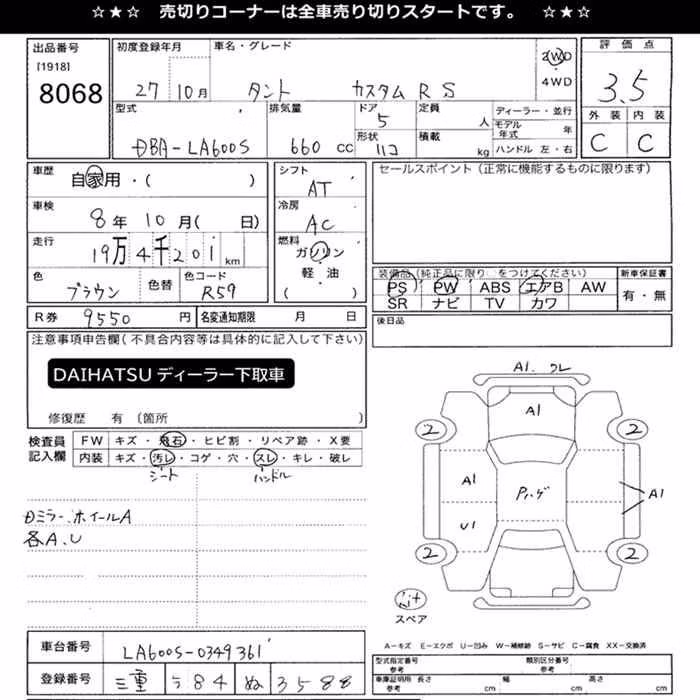 ☆★☆ 売切りコーナーは全車売り切りスタートです。 ☆★☆
出品番号
[1918]
8068
初度登録年月
27 10月
車名・グレード
タント カスタム RS
2WD
4WD
評価点
3.5
外装 内装
C C
型式
DBA-LA600S
排気量
660 cc
ドア
5
形状
ハコ
定員
人
積載
kg
ディーラー・並行
モデル年式 年
ハンドル 左・右
車歴
自家用・( )
車検
8年 10月( 日)
走行
19万4千201km
色
ブラウン
色替
色コード
R59
シフト
AT
冷房
AC
燃料
ガソリン
・
軽・油
( )
セールスポイント(正常に機能するものに限ります)
装備品(純正品に限り○をつけてください)
PS PW ABS エアB AW
SR ナビ TV カワ
新車保証書
有・無
後日品
R券 9550円
名変通知期限 月 日
注意事項申告欄(不具合内容等は具体的に記入して下さい)
DAIHATSU ディーラー下取車
修復歴 有 (箇所 )
検査員記入欄
FW キズ・飛石・ヒビ割・リペア跡・X要
内装 キズ・汚レ・コゲ・穴・スレ・キレ・破レ
シート ハンドル
Dミラー.ホイールA
各A.U
A1. ワレ
A1
2 2
A1
U1
A1
2 2
スペア
A-キズ E-エクボ U-凹み W-補修跡 S-サビ C-腐食 XX-交換済
車台番号
LA600S-0349361
登録番号
三重 584 ぬ 3588
型式指定番号
参考
類別区分番号
参考
車庫証明用 長さ cm 幅 cm 高さ cm
参考